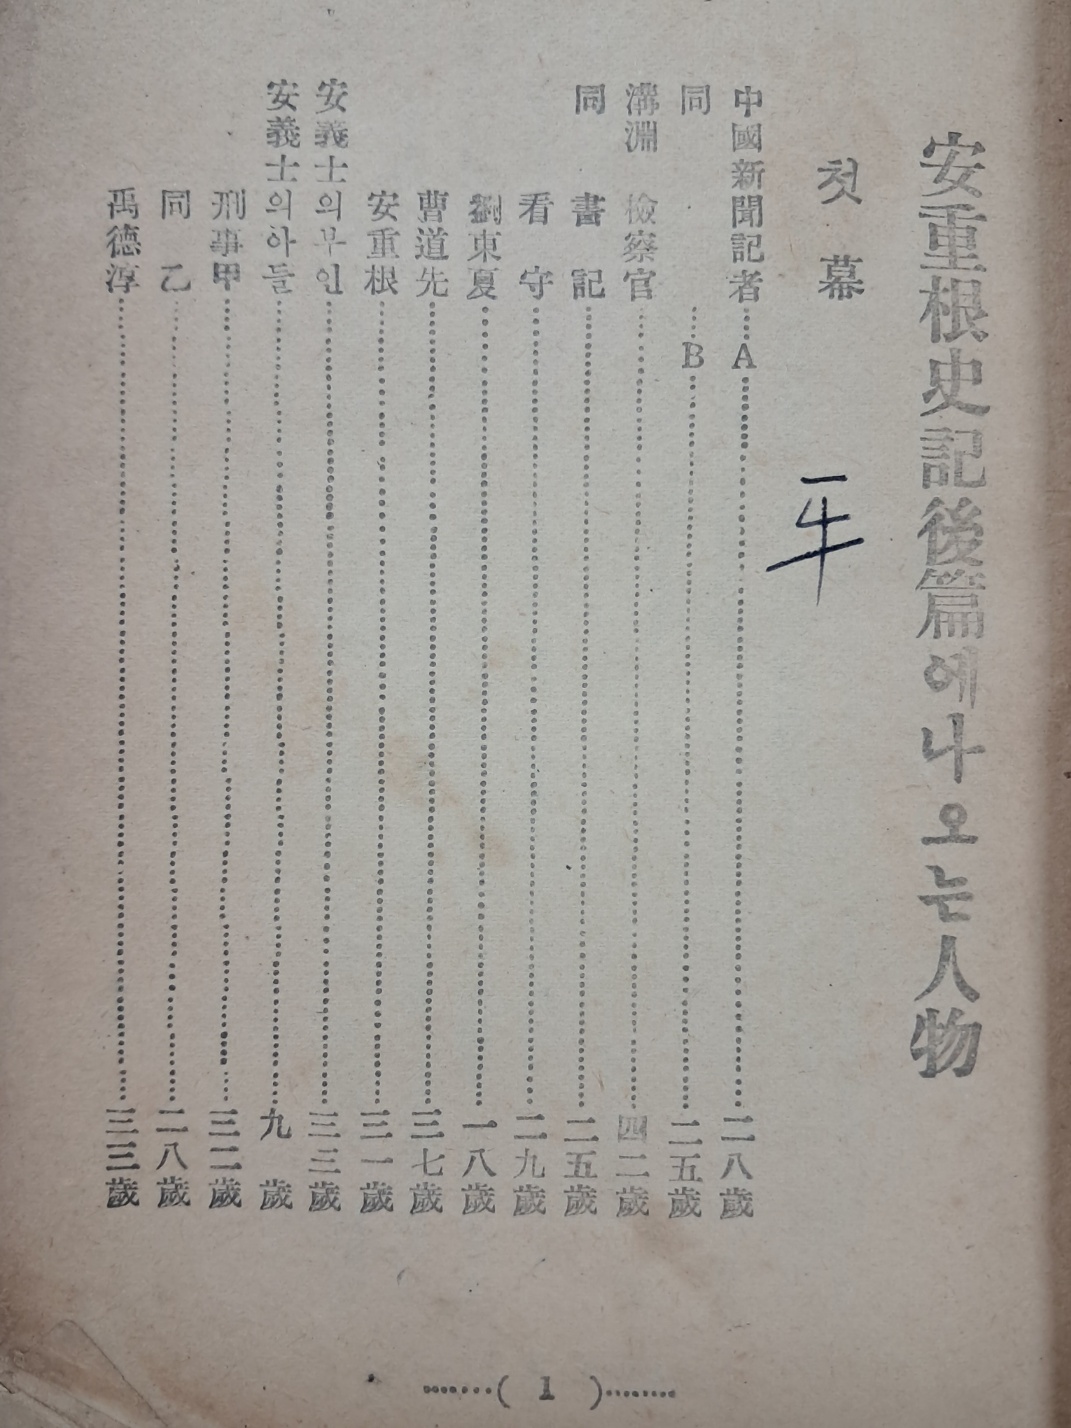 安重根史記後篇에나오는人物
첫幕
中國新聞記者………A………二八歲
同………B………二五歲
溝淵 檢察官………四二歲
同 書記………二五歲
看守………二九歲
劉東夏………一八歲
曹道先………三七歲
安重根………三一歲
安義士의부인………三三歲
安義士의아들………九歲
刑事甲………三二歲
同 乙………二八歲
禹德淳………三三歲
………( 1 )………